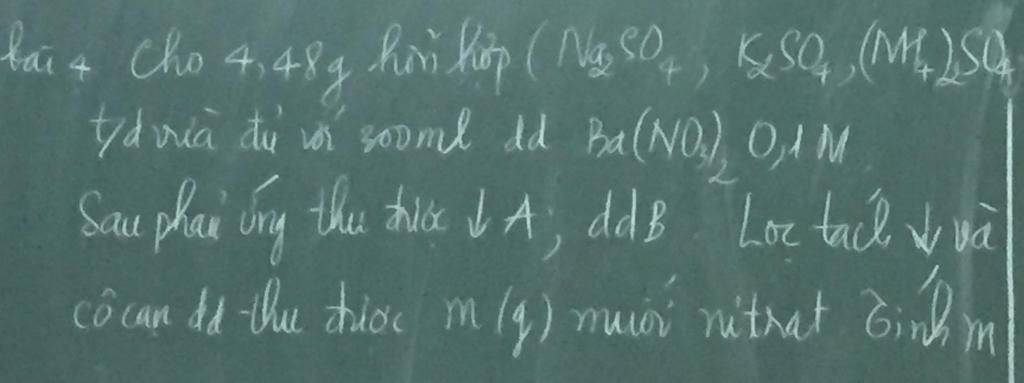 bài 4 Cho 4,48g hỗn hợp (Na₂SO₄, K₂SO₄, (NH₄)₂SO₄
t/d vừa đủ với 300ml dd Ba(NO₃)₂ 0,1M
Sau phản ứng thu được ↓ A, ddB Lọc tách ↓ và
cô cạn dd thu được m (g) muối nitrat Tính m